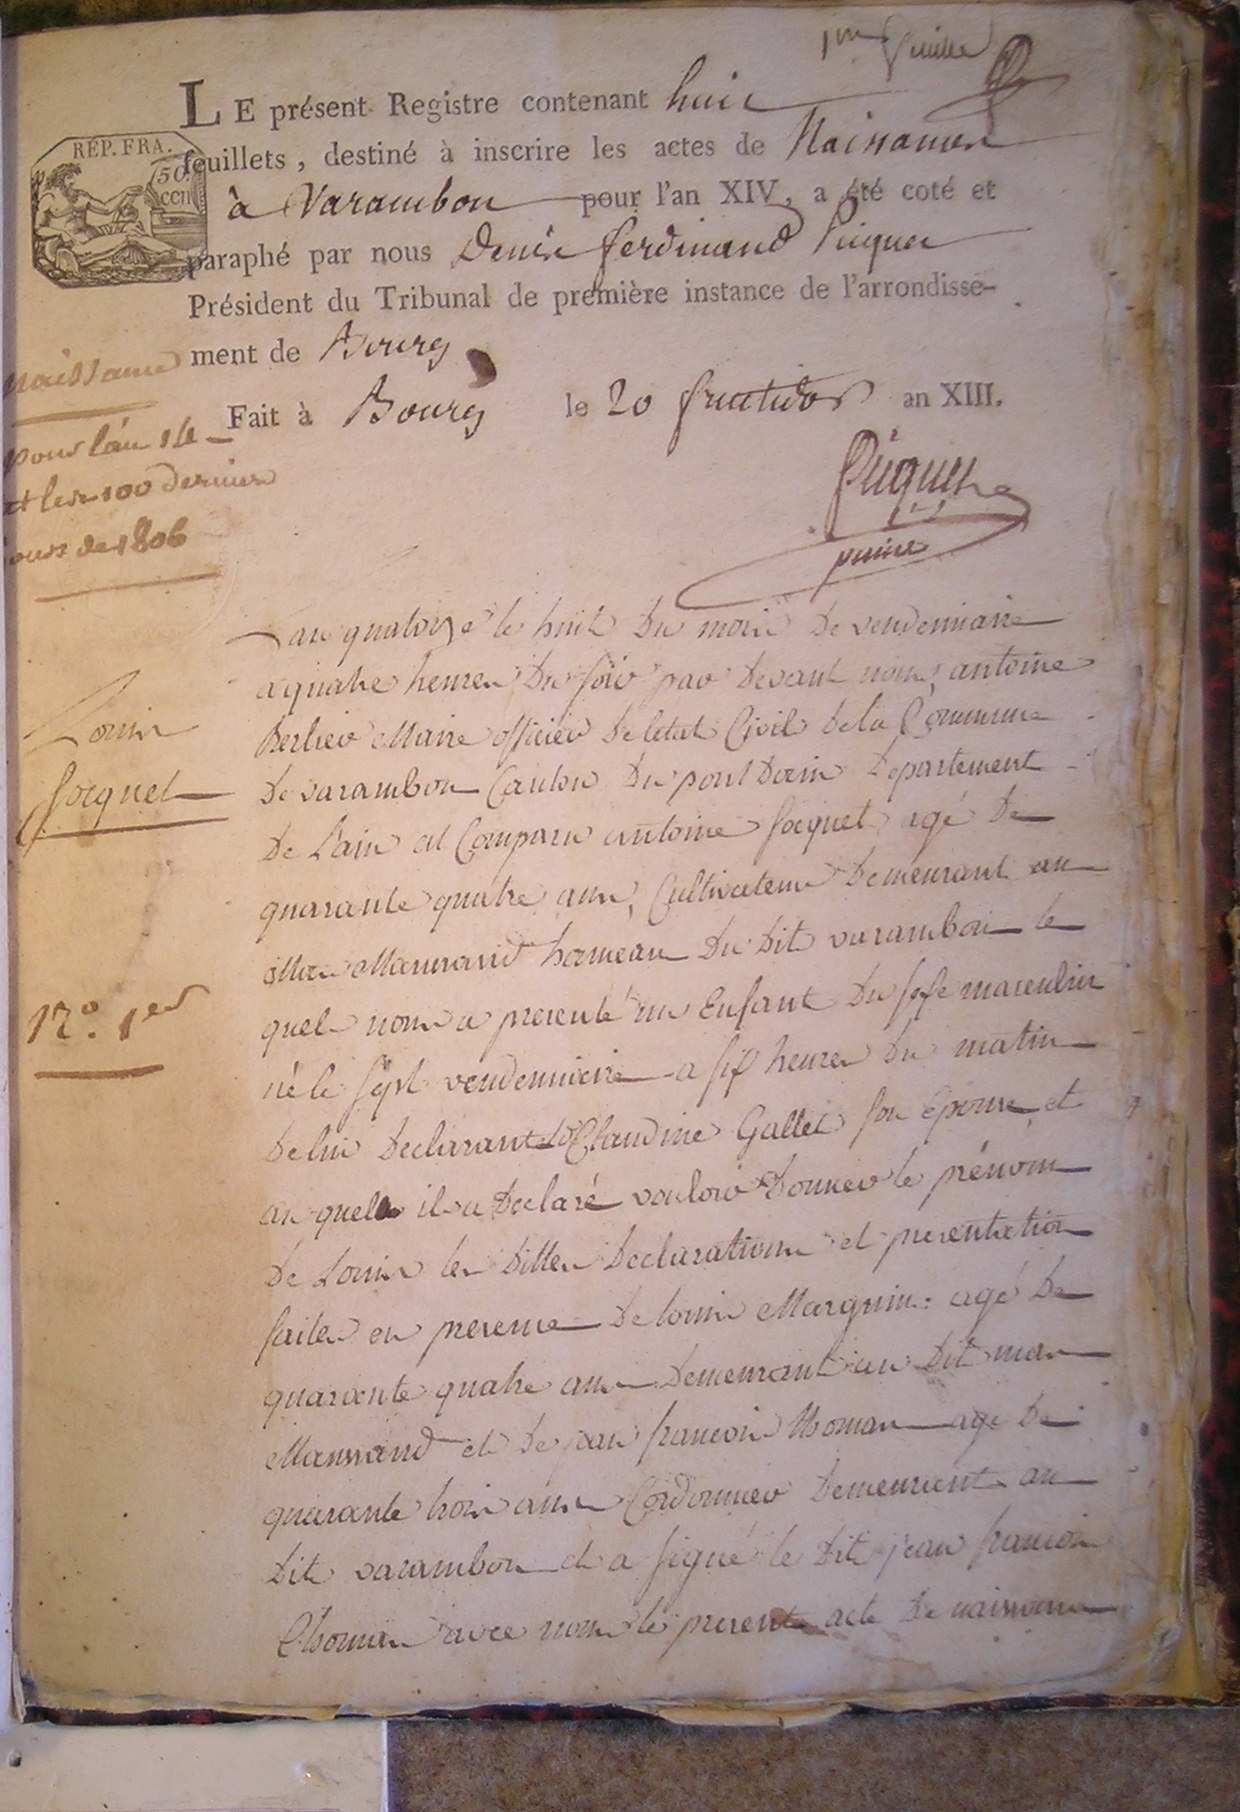 1er feuillet
LE présent Registre contenant huit
feuillets, destiné à inscrire les actes de Naissances
à Varambon pour l'an XIV, a été coté et
paraphé par nous Denis ferdinand Picquet
Président du Tribunal de première instance de l'arrondisse-
ment de Bourg
Fait à Bourg le 20 fructidor an XIII.
RÉP. FRA.
50
CEN
Picquet
Naissance
pour l'an 14
et les 100 derniers
jours de 1806
Louis
Jocquet
N° 1er
L'an quatorze le huit du mois de vendemiaire
a quatre heures du soir par devant nous, antoine
Berlier Maire officier de letat Civil de la Commune
de varambon Canton du pont Dain departement
de L'ain est Comparu antoine Jocquet agé de
quarante quatre ans, Cultivateur demeurant au
Mas Maurand hameau du dit varambon le
quel nous a presenté un Enfant du sexe masculin
né le sept vendemiaire a six heures du matin
de lui declarant et de Claudine Gallet son epouse et
au quel il a declaré vouloir donner le prénom
de Louis les dittes declarations et presentation
faites en presence de louis Marguin agé de
quarante quatre ans demeurant au dit mas
Maurand et de jean francois thomas agé de
quarante trois ans Cordonnier demeurant au
dit varambon et a signé le dit jean francois
Thomas avec nous le present acte de naissance